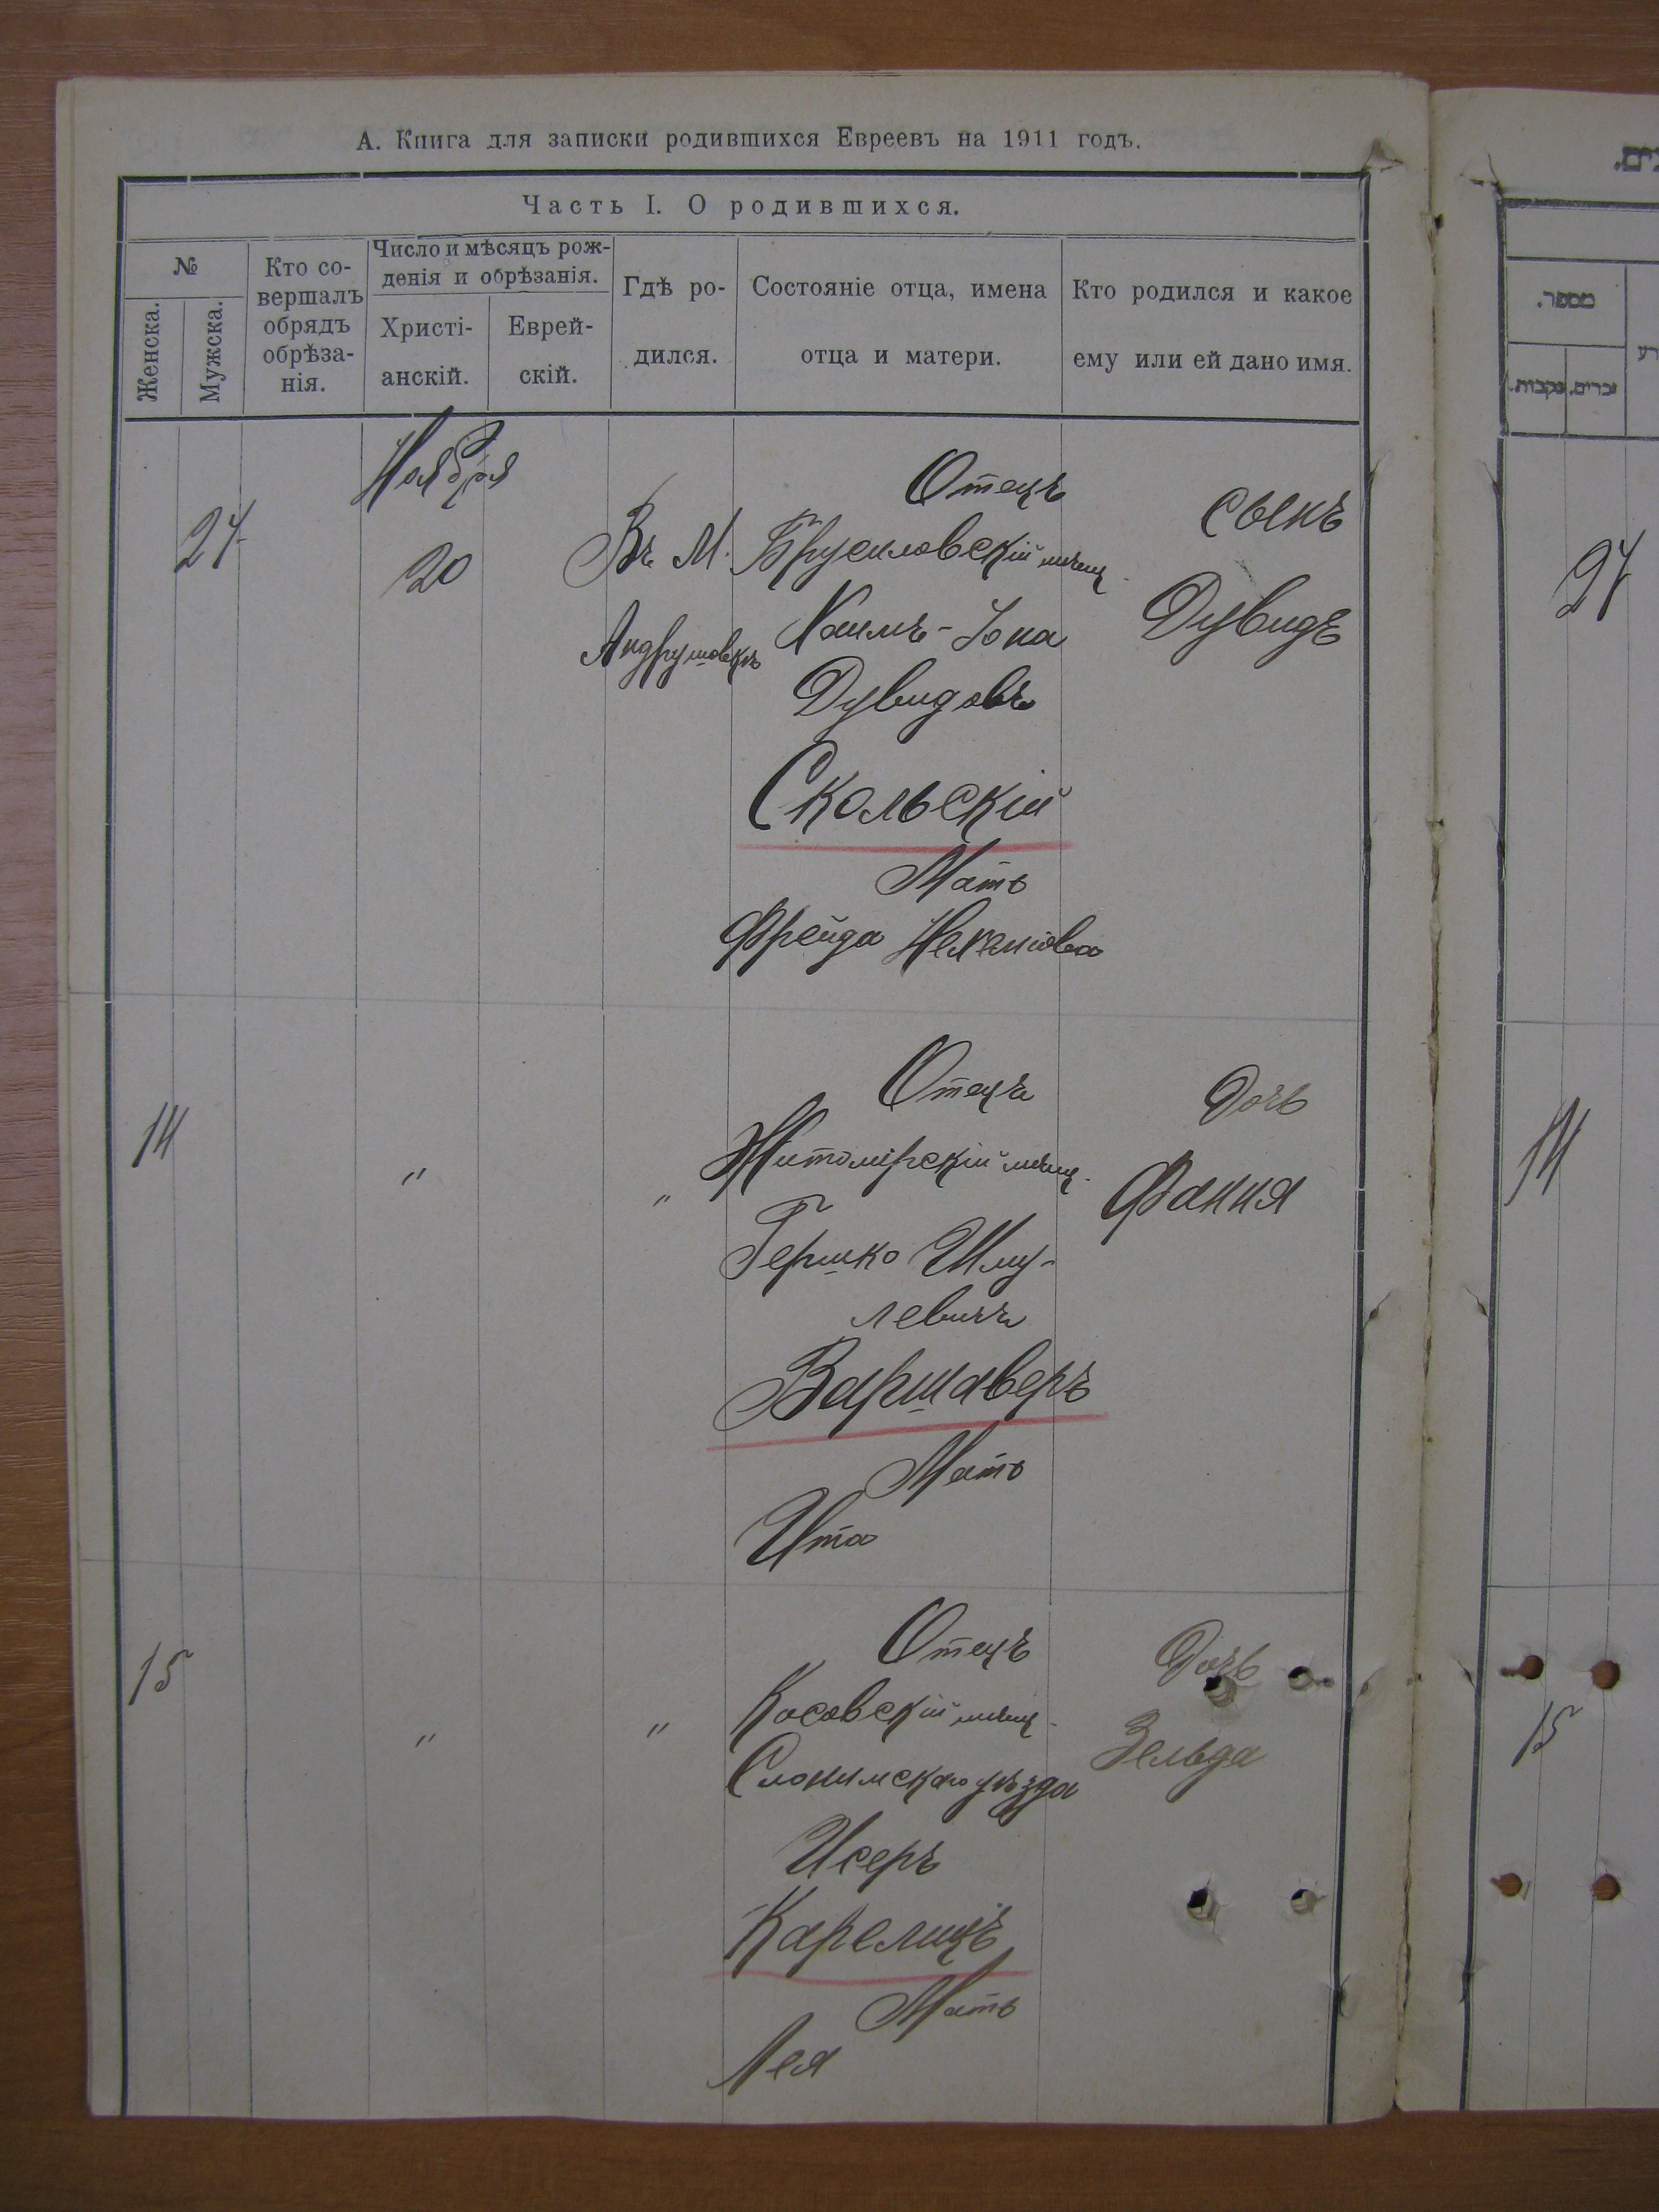 А. Книга для записки родившихся Евреевъ на 1911 годъ.
Часть I. О родившихся.
№
Женска.
Мужска.
Кто со-
вершалъ
обрядъ
обрѣза-
нія.
Число и мѣсяцъ рож-
денія и обрѣзанія.
Христі-
анскій.
Еврей-
скій.
Гдѣ ро-
дился.
Состояніе отца, имена
отца и матери.
Кто родился и какое
ему или ей дано имя.
Ноября
20
Въ М.
Андрушовкѣ
Отецъ
Брусиловскій мѣщ.
Хаимъ-Іона
Дувидовъ
Скольскій
Мать
Фрейда
сынъ
Дувидъ
14
"
"
Отецъ
Житомірскій мѣщ.
Гершко Шму-
левичъ
Варшаверъ
Мать
Ита
Дочь
Фаня
15
"
"
Отецъ
Косовскій мѣщ.
Слонимскаго уѣзда
Исеръ
Карелицъ
Мать
Лея
Дочь
Зельда
מספר.
זכרים.
נקבות.
14
15